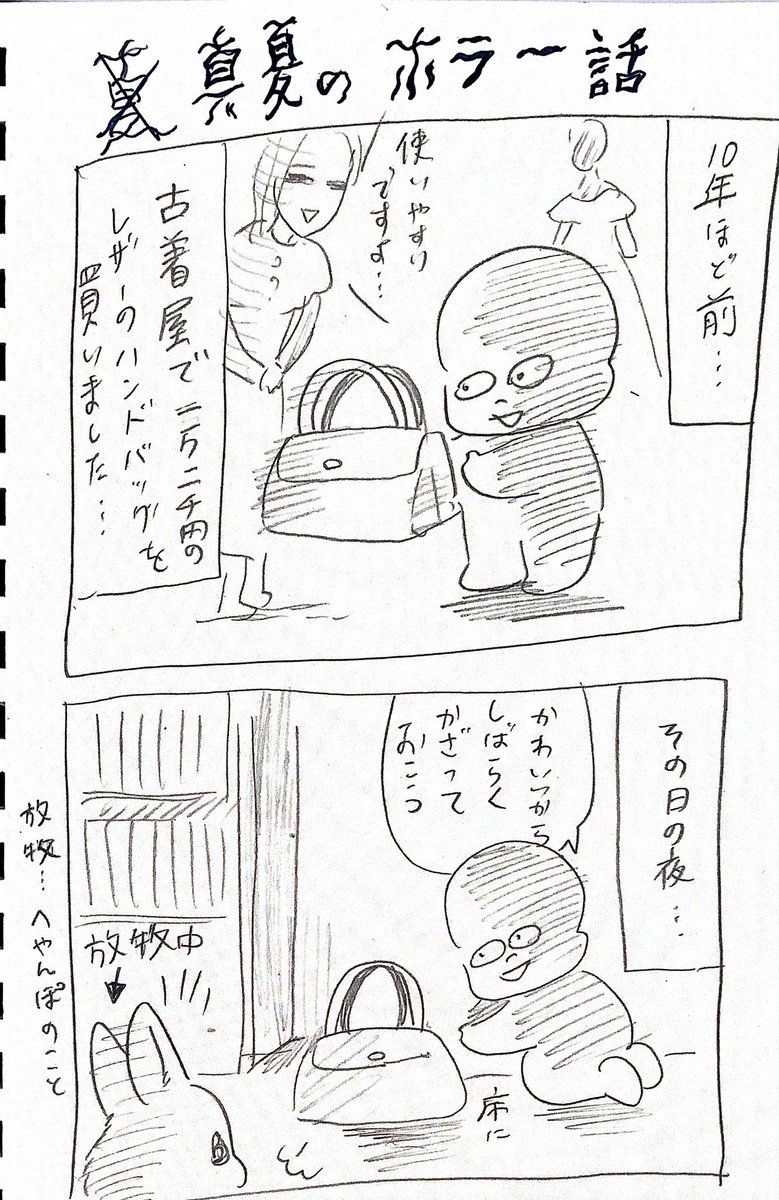 真夏のホラー話
10年ほど前…
使いやすい
ですよ…
古着屋で二万二千円の
レザーのハンドバッグを
買いました…
その日の夜…
かわいっから
しばらく
かざって
おこっ
床に
放牧中
放牧…へやんぽのこと